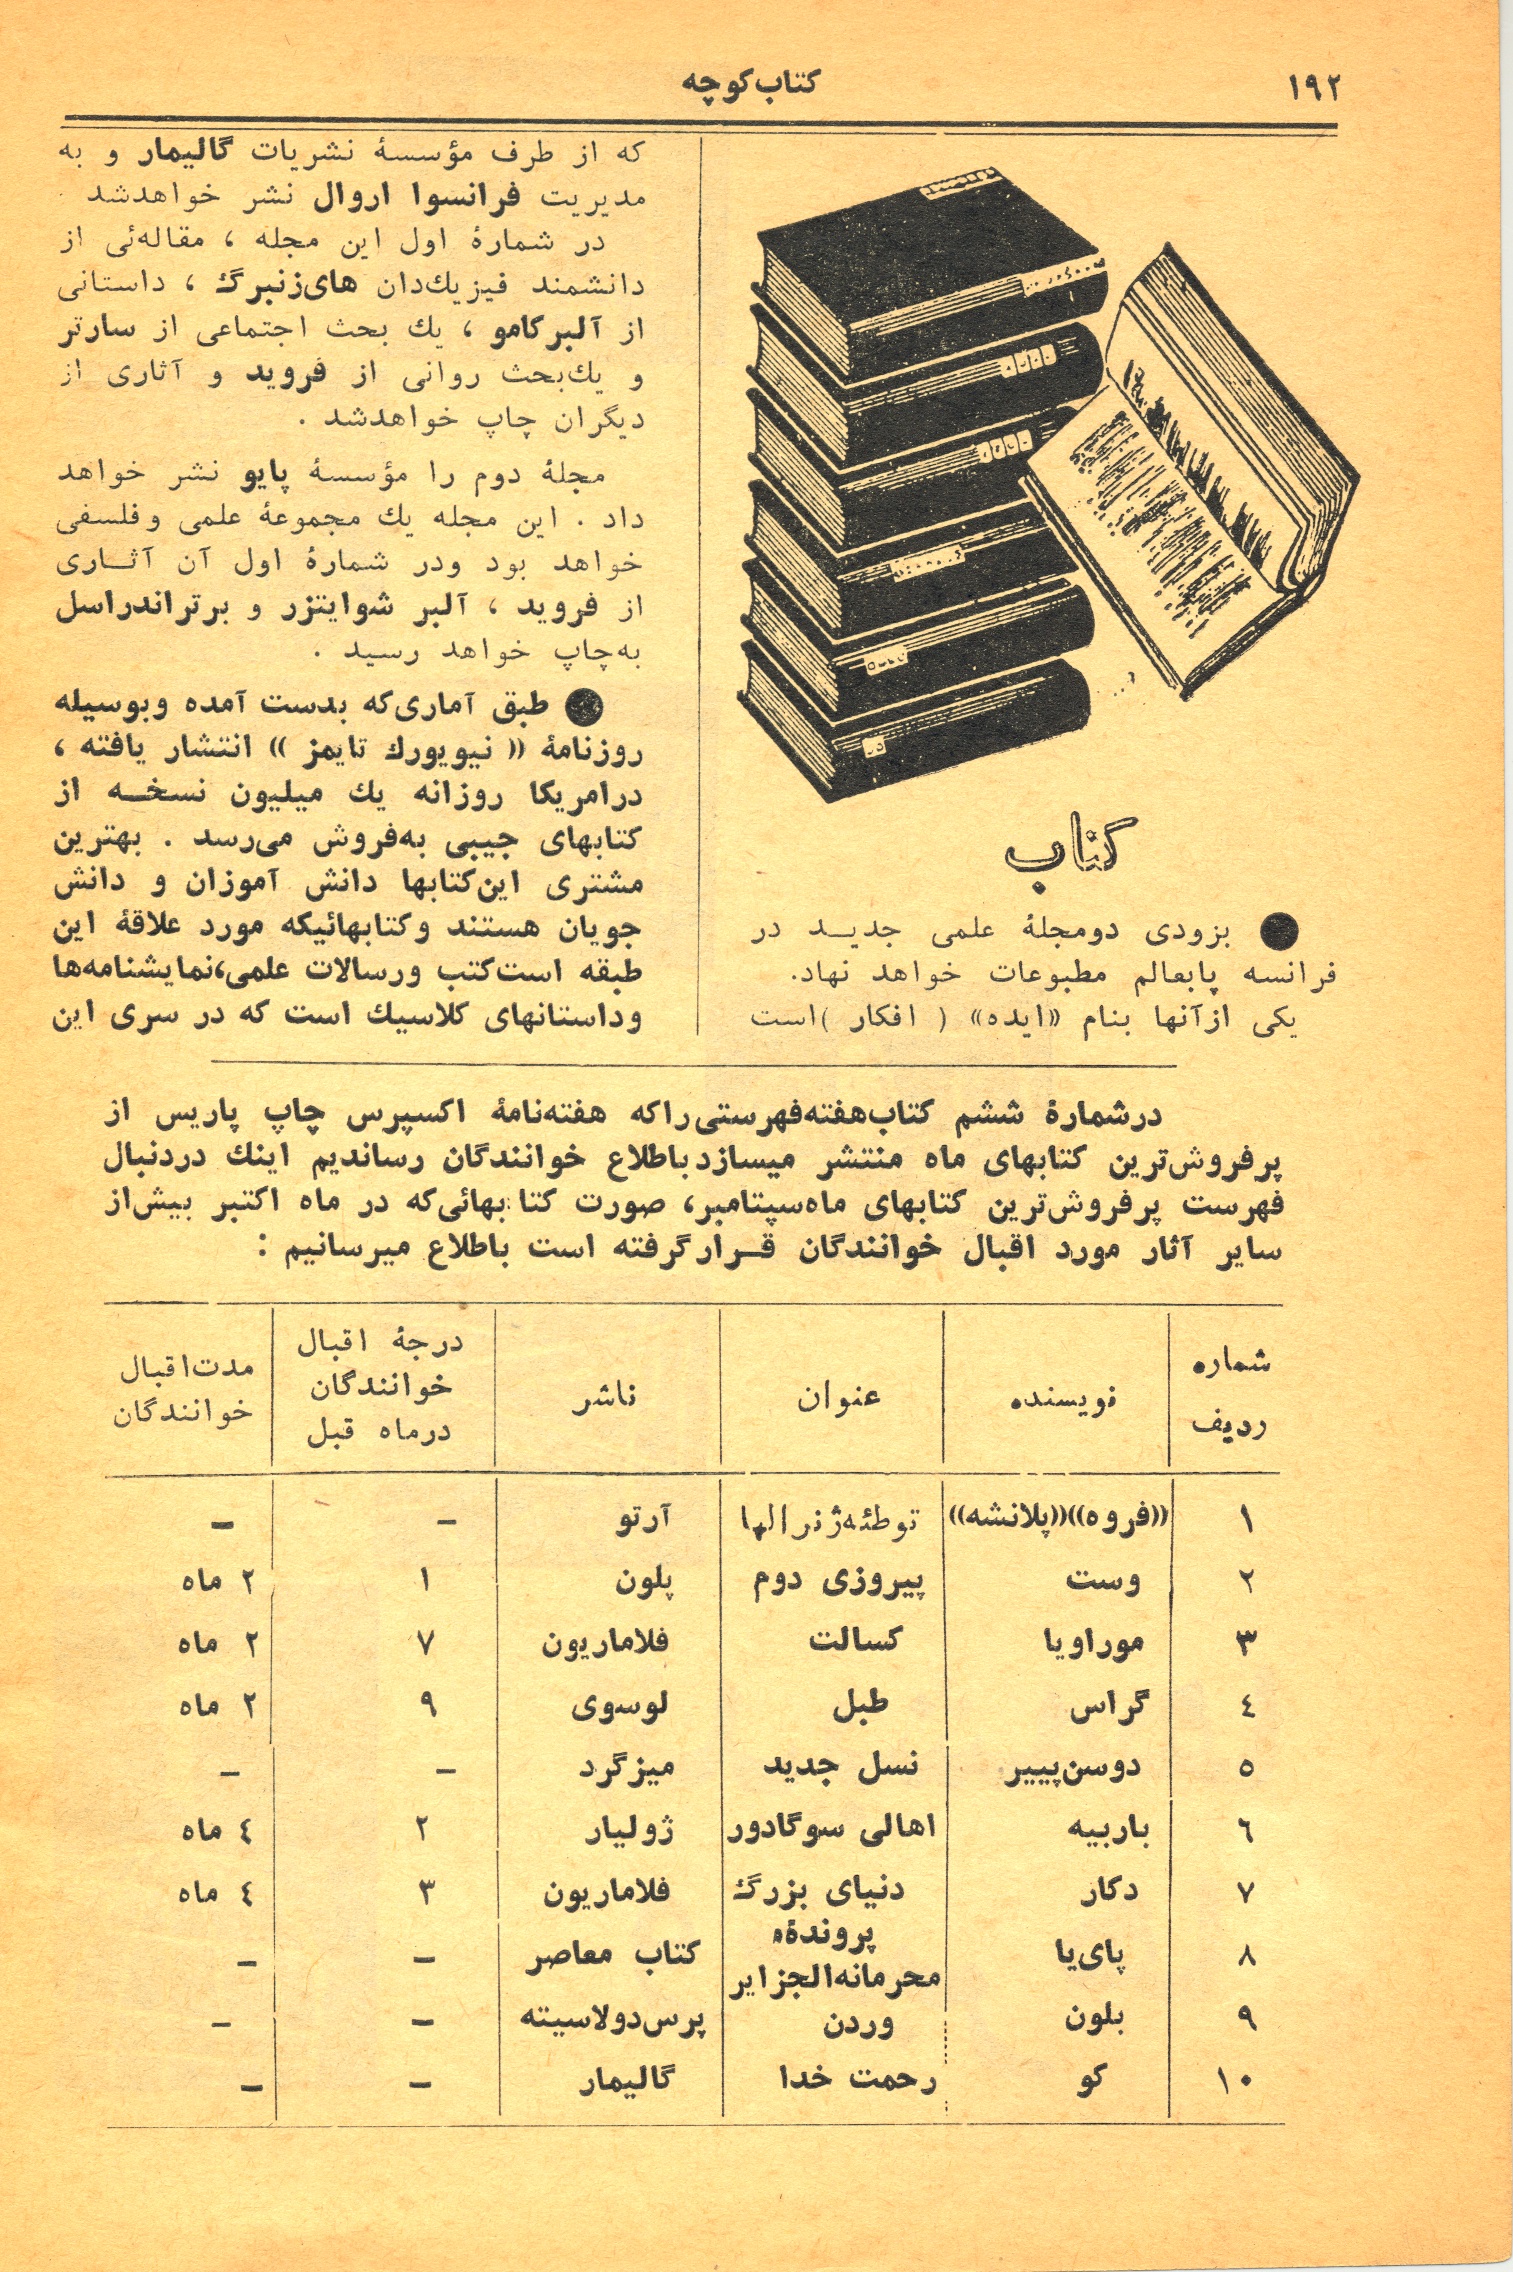 ۱۹۲
کتاب کوچه
کتاب
● بزودی دومجلهٔ علمی جدیــد در
فرانسه پابعالم مطبوعات خواهد نهاد.
یکی ازآنها بنام «ایده» ( افکار )است
که از طرف مؤسسهٔ نشریات گالیمار و به
مدیریت فرانسوا اروال نشر خواهدشد
در شمارهٔ اول این مجله ، مقاله‌ئی از
دانشمند فیزیك‌دان های‌زنبرگ ، داستانی
از آلبرکامو ، یك بحث اجتماعی از سارتر
و یك‌بحث روانی از فروید و آثاری از
دیگران چاپ خواهدشد .
مجلهٔ دوم را مؤسسهٔ پایو نشر خواهد
داد . این مجله یك مجموعهٔ علمی وفلسفی
خواهد بود ودر شمارهٔ اول آن آثــاری
از فروید ، آلبر شوایتزر و برتراندراسل
به‌چاپ خواهد رسید .
● طبق آماری‌که بدست آمده وبوسیله
روزنامهٔ « نیویورك تایمز » انتشار یافته ،
درامریکا روزانه یك میلیون نسخــه از
کتابهای جیبی به‌فروش می‌رسد . بهترین
مشتری این‌کتابها دانش آموزان و دانش
جویان هستند وکتابهائیکه مورد علاقهٔ این
طبقه است‌کتب ورسالات علمی،نمایشنامه‌ها
وداستانهای کلاسیك است که در سری این
درشمارهٔ ششم کتاب‌هفته‌فهرستی‌راکه هفته‌نامهٔ اکسپرس چاپ پاریس از
پرفروش‌ترین کتابهای ماه منتشر میسازدباطلاع خوانندگان رساندیم اینك دردنبال
فهرست پرفروش‌ترین کتابهای ماه‌سپتامبر، صورت کتابهائی‌که در ماه اکتبر بیش‌از
سایر آثار مورد اقبال خوانندگان قــرارگرفته است باطلاع میرسانیم :
شماره ردیف نویسنده عنوان ناشر درجهٔ اقبال خوانندگان درماه قبل مدت‌اقبال خوانندگان
۱ «فروه»«پلانشه» توطئه‌ژنرالها آرتو – –
۲ وست پیروزی دوم پلون ۱ ۲ ماه
۳ موراویا کسالت فلاماریون ۷ ۲ ماه
٤ گراس طبل لوسوی ۹ ۲ ماه
٥ دوسن‌پییر نسل جدید میزگرد – –
٦ باربیه اهالی سوگادور ژولیار ۲ ٤ ماه
۷ دکار دنیای بزرگ فلاماریون ۳ ٤ ماه
۸ پای‌یا پروندهٔ محرمانه‌الجزایر کتاب معاصر – –
۹ بلون وردن پرس‌دولاسیته – –
۱۰ کو رحمت خدا گالیمار – –